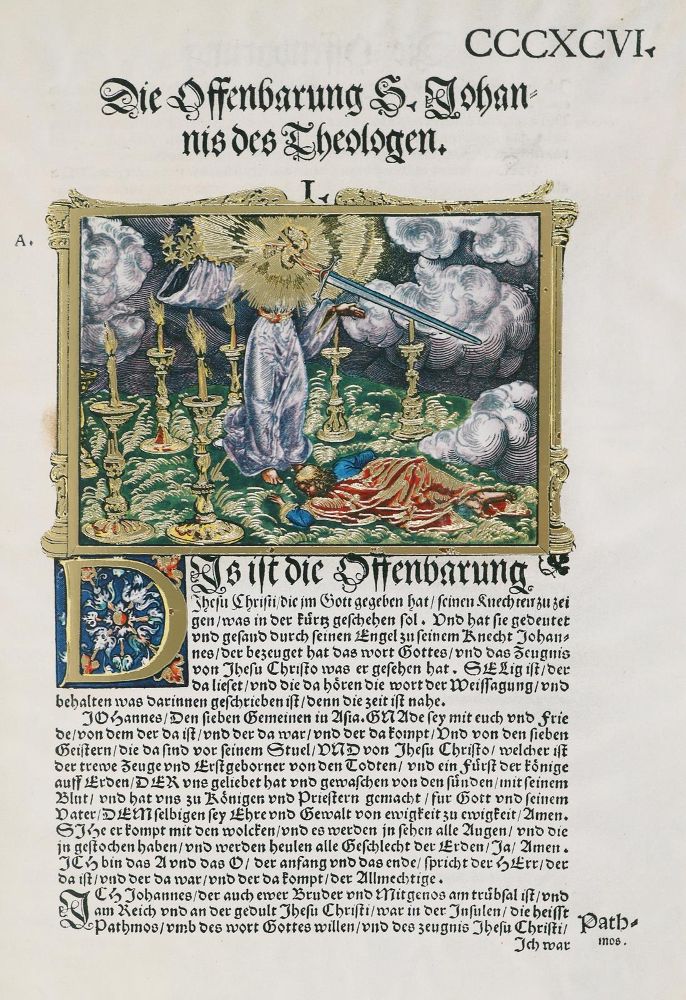 CCCXCVI.
Die Offenbarung S. Johan-
nis des Theologen.
I.
A.
DIs ist die Offenbarung
Jhesu Christi/die im Gott gegeben hat/seinen Knechten zu zei
gen/was in der kürtz geschehen sol. Vnd hat sie gedeutet
vnd gesand durch seinen Engel zu seinem Knecht Johan-
nes/der bezeuget hat das wort Gottes/vnd das Zeugnis
von Jhesu Christo was er gesehen hat. SELig ist/der
da lieset/vnd die da hören die wort der Weissagung/vnd
behalten was darinnen geschrieben ist/denn die zeit ist nahe.
JOHannes/Den sieben Gemeinen in Asia. GNAde sey mit euch vnd Frie
de/von dem der da ist/vnd der da war/vnd der da kompt/Vnd von den sieben
Geistern/die da sind vor seinem Stuel/VND von Jhesu Christo/welcher ist
der trewe Zeuge vnd Erstgeborner von den Todten/vnd ein Fürst der könige
auff Erden/DER vns geliebet hat vnd gewaschen von den sünden/mit seinem
Blut/vnd hat vns zu Königen vnd Priestern gemacht/fur Gott vnd seinem
Vater/DEMselbigen sey Ehre vnd Gewalt von ewigkeit zu ewigkeit/Amen.
SIHe er kompt mit den wolcken/vnd es werden jn sehen alle Augen/vnd die
jn gestochen haben/vnd werden heulen alle Geschlecht der Erden/Ja/Amen.
JCH bin das A vnd das O/der anfang vnd das ende/spricht der HErr/der
da ist/vnd der da war/vnd der da kompt/der Allmechtige.
JCH Johannes/der auch ewer Bruder vnd Mitgenos am trübsal ist/vnd
am Reich vnd an der gedult Jhesu Christi/war in der Insulen/die heisst
Pathmos/vmb des wort Gottes willen/vnd des zeugnis Jhesu Christi/
Jch war
Path-
mos.